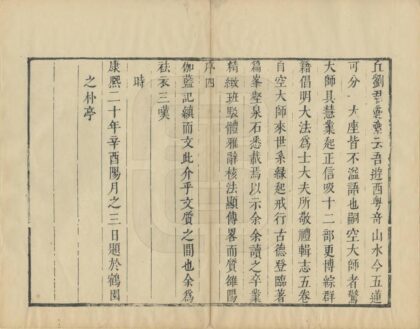 且劉君彥彥云吾遊西粵音山水今五遍
可分大座皆不溢語也嗣空大師者鷲
大師具慧業起正信吸十二部更博綜群
籍倡明大法為士大夫所敬禮輯志五卷
自空大師來世系緣起戒行古德登臨著
篇峯壑泉石悉載焉以示余余讀之卒業
精緻班駁體雅辭核法顯傳畧而質雒陽
序四
伽藍記縟而文此介乎文質之間也余為
袪衣三嘆
時
康熙二十年辛酉陽月之三日題於鶴閑
之朴亭